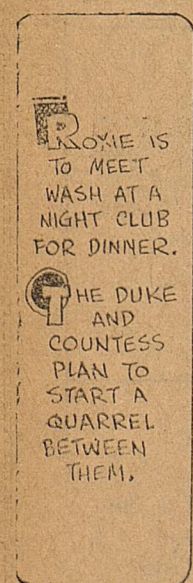 ROXIE IS
TO MEET
WASH AT A
NIGHT CLUB
FOR DINNER.
THE DUKE
AND
COUNTESS
PLAN TO
START A
QUARREL
BETWEEN
THEM.